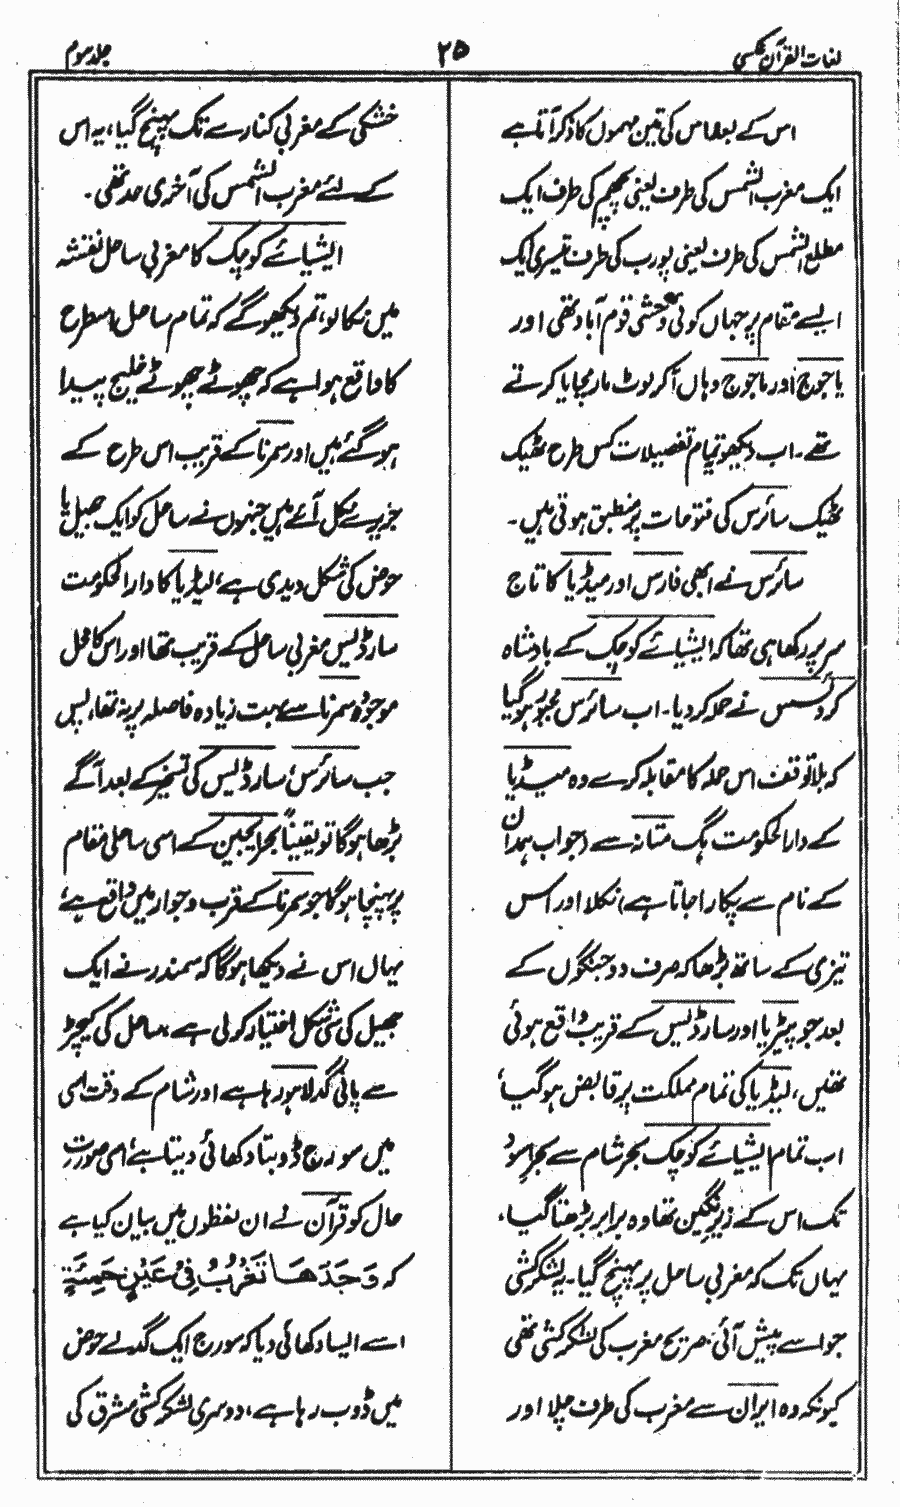 لغات القرآن عکسی
۲۵
جلد سوم
اس کے بعد اس کی تین مہموں کا ذکر آتا ہے
ایک مغرب الشمس کی طرف یعنی پچھم کی طرف ایک
مطلع الشمس کی طرف یعنی پورب کی طرف تیسری ایک
ایسے مقام پر جہاں کوئی وحشی قوم آباد تھی اور
یاجوج اور ماجوج وہاں آکر لوٹ مار مچایا کرتے
تھے۔ اب دیکھو تمام تفصیلات کس طرح ٹھیک
ٹھیک سائرس کی فتوحات پر منطبق ہوتی ہیں۔
سائرس نے ابھی فارس اور میڈیا کا تاج
سر پر رکھا ہی تھا کہ ایشیائے کوچک کے بادشاہ
کرؤسس نے حملہ کر دیا۔ اب سائرس مجبور ہو گیا
کہ بلا توقف اس حملہ کا مقابلہ کرے وہ میڈیا
کے دارالحکومت ہگ متانہ سے (جو اب ہمدان
کے نام سے پکارا جاتا ہے) نکلا اور اس
تیزی کے ساتھ بڑھا کہ صرف دو جنگوں کے
بعد جو پیٹریا اور سارڈیس کے قریب واقع ہوئی
تھیں، لیڈیا کی تمام مملکت پر قابض ہو گیا،
اب تمام ایشیائے کوچک بحر شام سے بحر اسود
تک اس کے زیر نگین تھا وہ برابر بڑھتا گیا،
یہاں تک کہ مغربی ساحل پر پہنچ گیا۔ یہ لشکر کشی
جو اسے پیش آئی، صریح مغرب کی لشکر کشی تھی
کیونکہ وہ ایران سے مغرب کی طرف چلا اور
خشکی کے مغربی کنارے تک پہنچ گیا، یہ اس
کے لئے مغرب الشمس کی آخری حد تھی۔
ایشیائے کوچک کا مغربی ساحل نقشہ
میں نکالو، تم دیکھو گے کہ تمام ساحل اسطرح
کا واقع ہوا ہے کہ چھوٹے چھوٹے خلیج پیدا
ہو گئے ہیں اور سمرنا کے قریب اس طرح کے
جزیرے نکل آئے ہیں جنہوں نے ساحل کو ایک جھیل یا
حوض کی شکل دیدی ہے، لیڈیا کا دارالحکومت
سارڈیس مغربی ساحل کے قریب تھا اور اس کا محل
موجودہ سمرنا سے بہت زیادہ فاصلہ پر نہ تھا، پس
جب سائرس، سارڈیس کی تسخیر کے بعد آگے
بڑھا ہوگا تو یقیناً بحر ایجین کے اسی ساحلی مقام
پر پہنچا ہوگا جو سمرنا کے قرب و جوار میں واقع ہے،
یہاں اس نے دیکھا ہوگا کہ سمندر نے ایک
جھیل کی سی شکل اختیار کر لی ہے، ساحل کی کیچڑ
سے پانی گدلا ہو رہا ہے اور شام کے وقت اسی
میں سورج ڈوبتا دکھائی دیتا ہے، اسی صورت
حال کو قرآن نے ان لفظوں میں بیان کیا ہے
کہ وَجَدَهَا تَغْرُبُ فِیْ عَیْنٍ حَمِئَةٍ
اسے ایسا دکھائی دیا کہ سورج ایک گدلے حوض
میں ڈوب رہا ہے، دوسری لشکر کشی مشرق کی